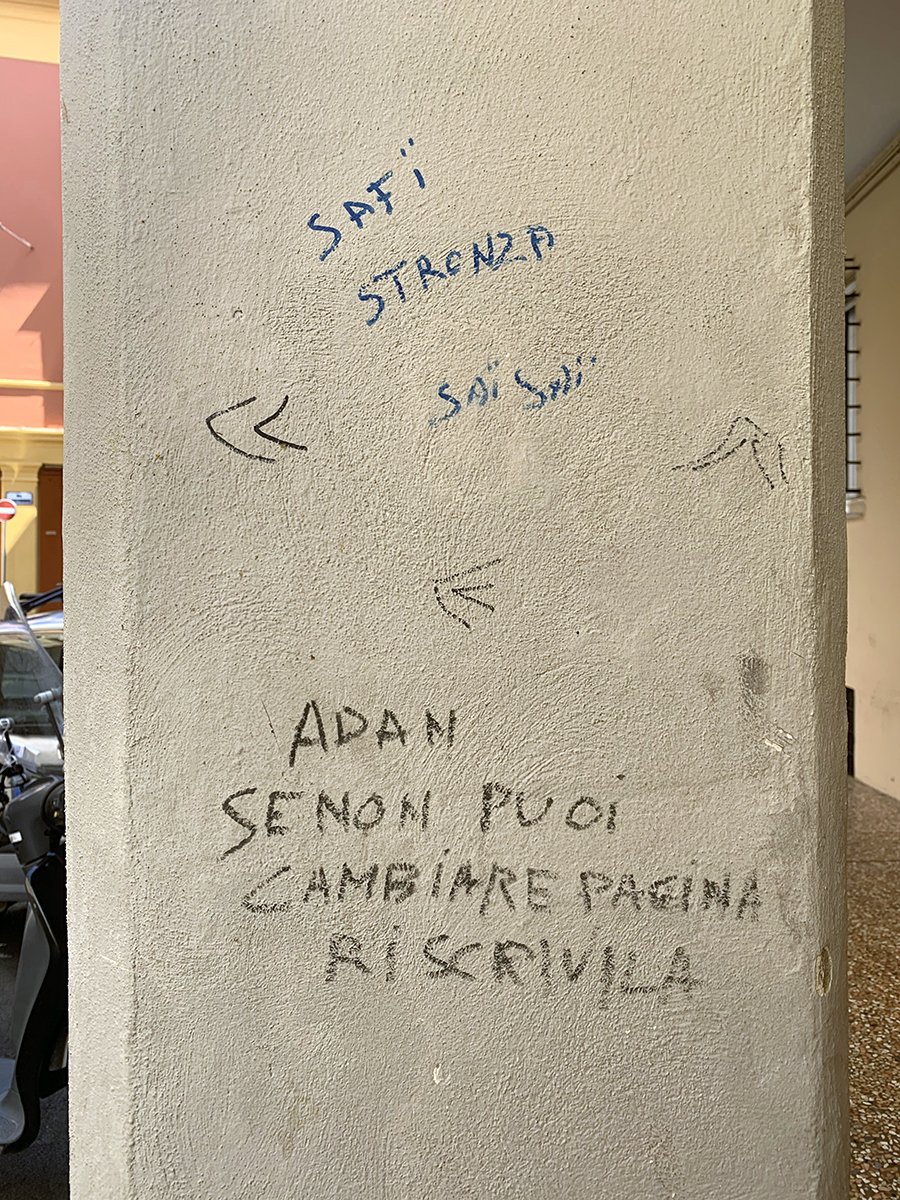 SAFÏ
STRONZA
SAÏ SAÏ
ADAM
SENON PUOi
CAMBiARE PAGINA
Ri SCRIVILA